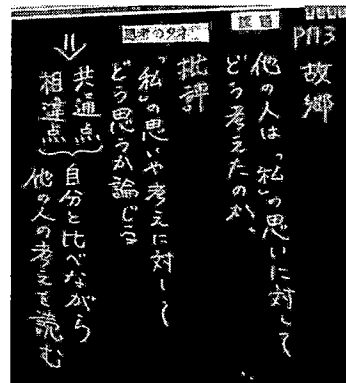 P113 故郷
課題
他の人は「私」の思いに対して
どう考えたのか。
思考のタネ
批評
「私」の思いや考えに対して
どう思うか論じる
⇓
共通点
相違点
自分と比べながら
他の人の考えを読む